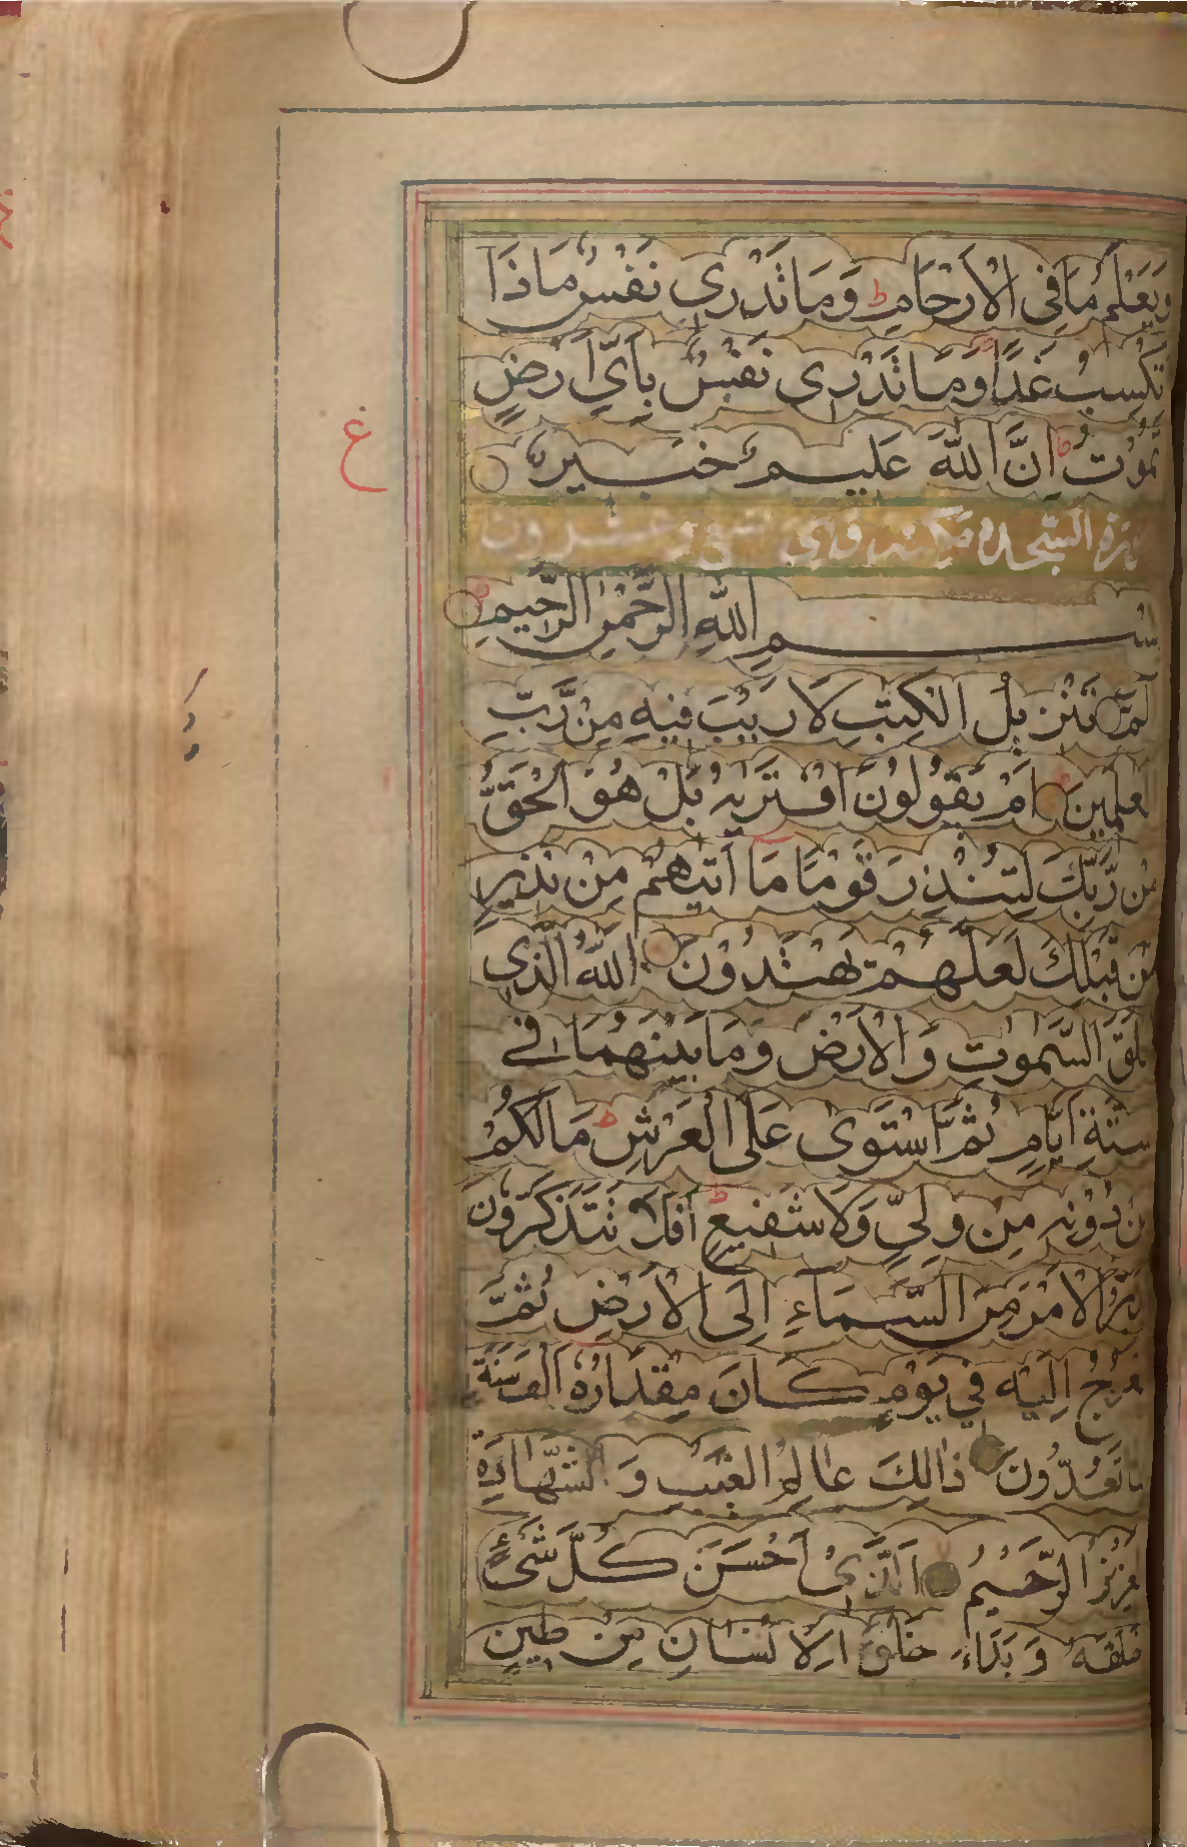 وَيَعْلَمُ مَا فِى الْاَرْحَامِ ط وَمَا تَدْرِى نَفْسٌ مَاذَا
تَكْسِبُ غَدًا وَمَا تَدْرِى نَفْسٌ بِاَىِّ اَرْضٍ
تَمُوْتُ اِنَّ اللّٰهَ عَلِيمٌ خَبِيرٌ
ع
سورة السجده مكية وهى
بِسْمِ اللّٰهِ الرَّحْمٰنِ الرَّحِيمِ
الٓمّٓ تَنْزِيْلُ الْكِتٰبِ لَا رَيْبَ فِيْهِ مِنْ رَّبِّ
الْعٰلَمِيْنَ اَمْ يَقُوْلُوْنَ افْتَرٰىهُ بَلْ هُوَ الْحَقُّ
مِنْ رَّبِّكَ لِتُنْذِرَ قَوْمًا مَا اَتٰىهُمْ مِنْ نَذِيْرٍ
مِنْ قَبْلِكَ لَعَلَّهُمْ يَهْتَدُوْنَ اَللّٰهُ الَّذِى
خَلَقَ السَّمٰوٰتِ وَالْاَرْضَ وَمَا بَيْنَهُمَا فِى
سِتَّةِ اَيَّامٍ ثُمَّ اسْتَوٰى عَلَى الْعَرْشِ ط مَا لَكُمْ
مِنْ دُوْنِهٖ مِنْ وَلِىٍّ وَلَا شَفِيْعٍ ط اَفَلَا تَتَذَكَّرُوْنَ
يُدَبِّرُ الْاَمْرَ مِنَ السَّمَآءِ اِلَى الْاَرْضِ ثُمَّ
يَعْرُجُ اِلَيْهِ فِىْ يَوْمٍ كَانَ مِقْدَارُهٗ اَلْفَ سَنَةٍ
مِمَّا تَعُدُّوْنَ ذٰالِكَ عَالِمُ الْغَيْبِ وَ الشَّهَادَةِ
الْعَزِيْزُ الرَّحِيْمُ اَلَّذِىْ اَحْسَنَ كُلَّ شَىْءٍ
خَلَقَهٗ وَ بَدَاءَ خَلْقَ الْاِنْسَانِ مِنْ طِيْنٍ